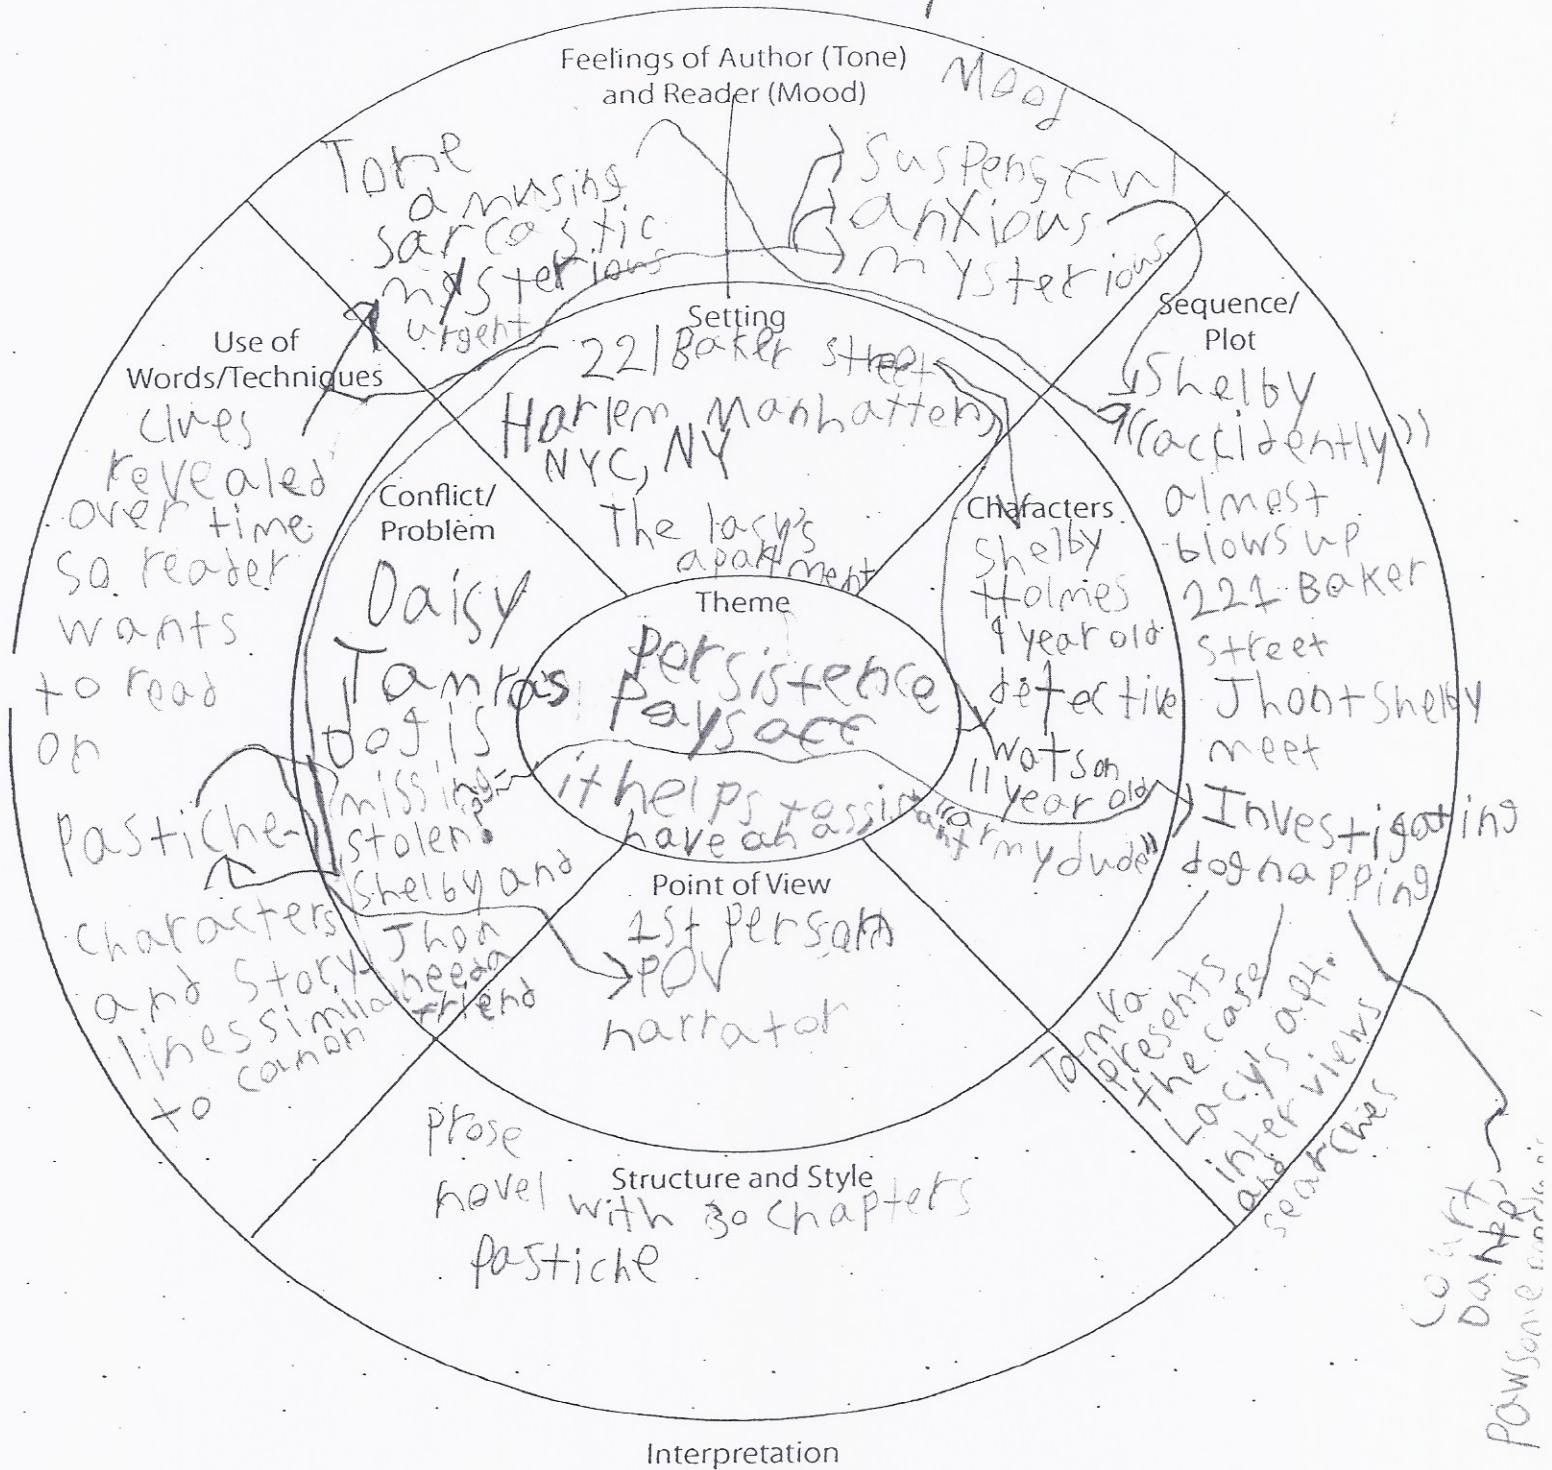 Feelings of Author (Tone)
and Reader (Mood)
Mood
Tone
amusing
sarcastic
mysterious
urgent
suspensful
anxious
mysterious
Use of
Words/Techniques
clues
revealed
over time
so reader
wants
to read
on
Pastiche-
characters
and story
lines similar
to canon
Setting
221 Baker Street
Harlem, Manhatten,
NYC, NY
The lacy's
apartment
Conflict/
Problem
Daisy
Tamra's
dog is
missing
stolen?
Shelby and
Jhon
need a
friend
Theme
Persistence
Pays off
it helps to
have an assistant
"or my dude"
Characters
Shelby
Holmes
9 year old
detective
Watson
11 year old
Sequence/
Plot
Shelby
"(accidently)"
almost
blows up
221 Baker
street
Jhon + Shelby
meet
Investigating
dognapping
Tamra
presents
the case
Lacy's apt.
interviews
and
searches
Point of View
1st Person
POV
narrator
Structure and Style
Prose
novel with 30 chapters
Pastiche
Interpretation